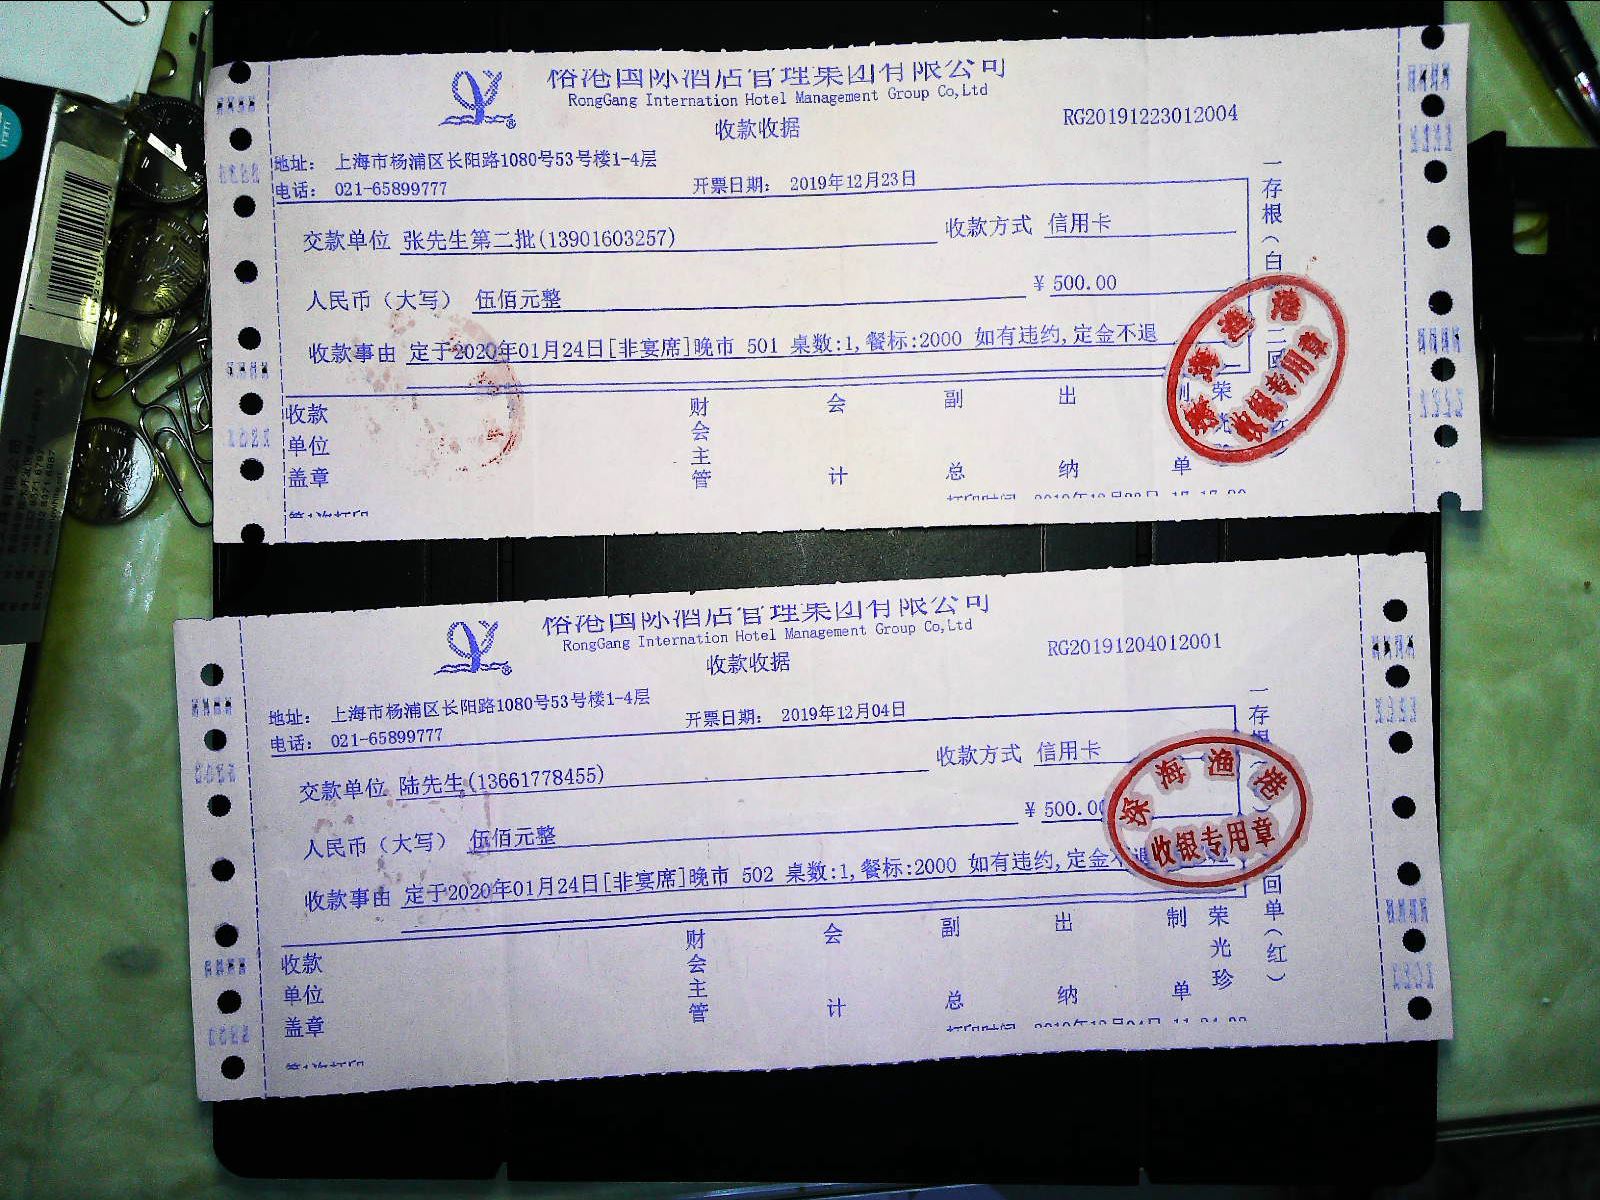 裕港国际酒店管理集团有限公司
RongGang Internation Hotel Management Group Co,Ltd
收款收据
RG20191223012004
地址： 上海市杨浦区长阳路1080号53号楼1-4层
电话： 021-65899777
开票日期： 2019年12月23日
交款单位 张先生第二批(13901603257)
收款方式 信用卡
人民币（大写） 伍佰元整
¥ 500.00
收款事由 定于2020年01月24日[非宴席]晚市 501 桌数:1,餐标:2000 如有违约,定金不退
收款单位盖章
财会主管
会计
副总
出纳
制单
荣光
一存根（白
二回
深海渔港
收银专用章
第1次打印
打印时间 2019年12月23日
裕港国际酒店管理集团有限公司
RongGang Internation Hotel Management Group Co,Ltd
收款收据
RG20191204012001
地址： 上海市杨浦区长阳路1080号53号楼1-4层
电话： 021-65899777
开票日期： 2019年12月04日
交款单位 陆先生(13661778455)
收款方式 信用卡
人民币（大写） 伍佰元整
¥ 500.00
收款事由 定于2020年01月24日[非宴席]晚市 502 桌数:1,餐标:2000 如有违约,定金不退
收款单位盖章
财会主管
会计
副总
出纳
制单
荣光珍
一存根
回单（红）
深海渔港
收银专用章
第1次打印
打印时间 2019年12月04日